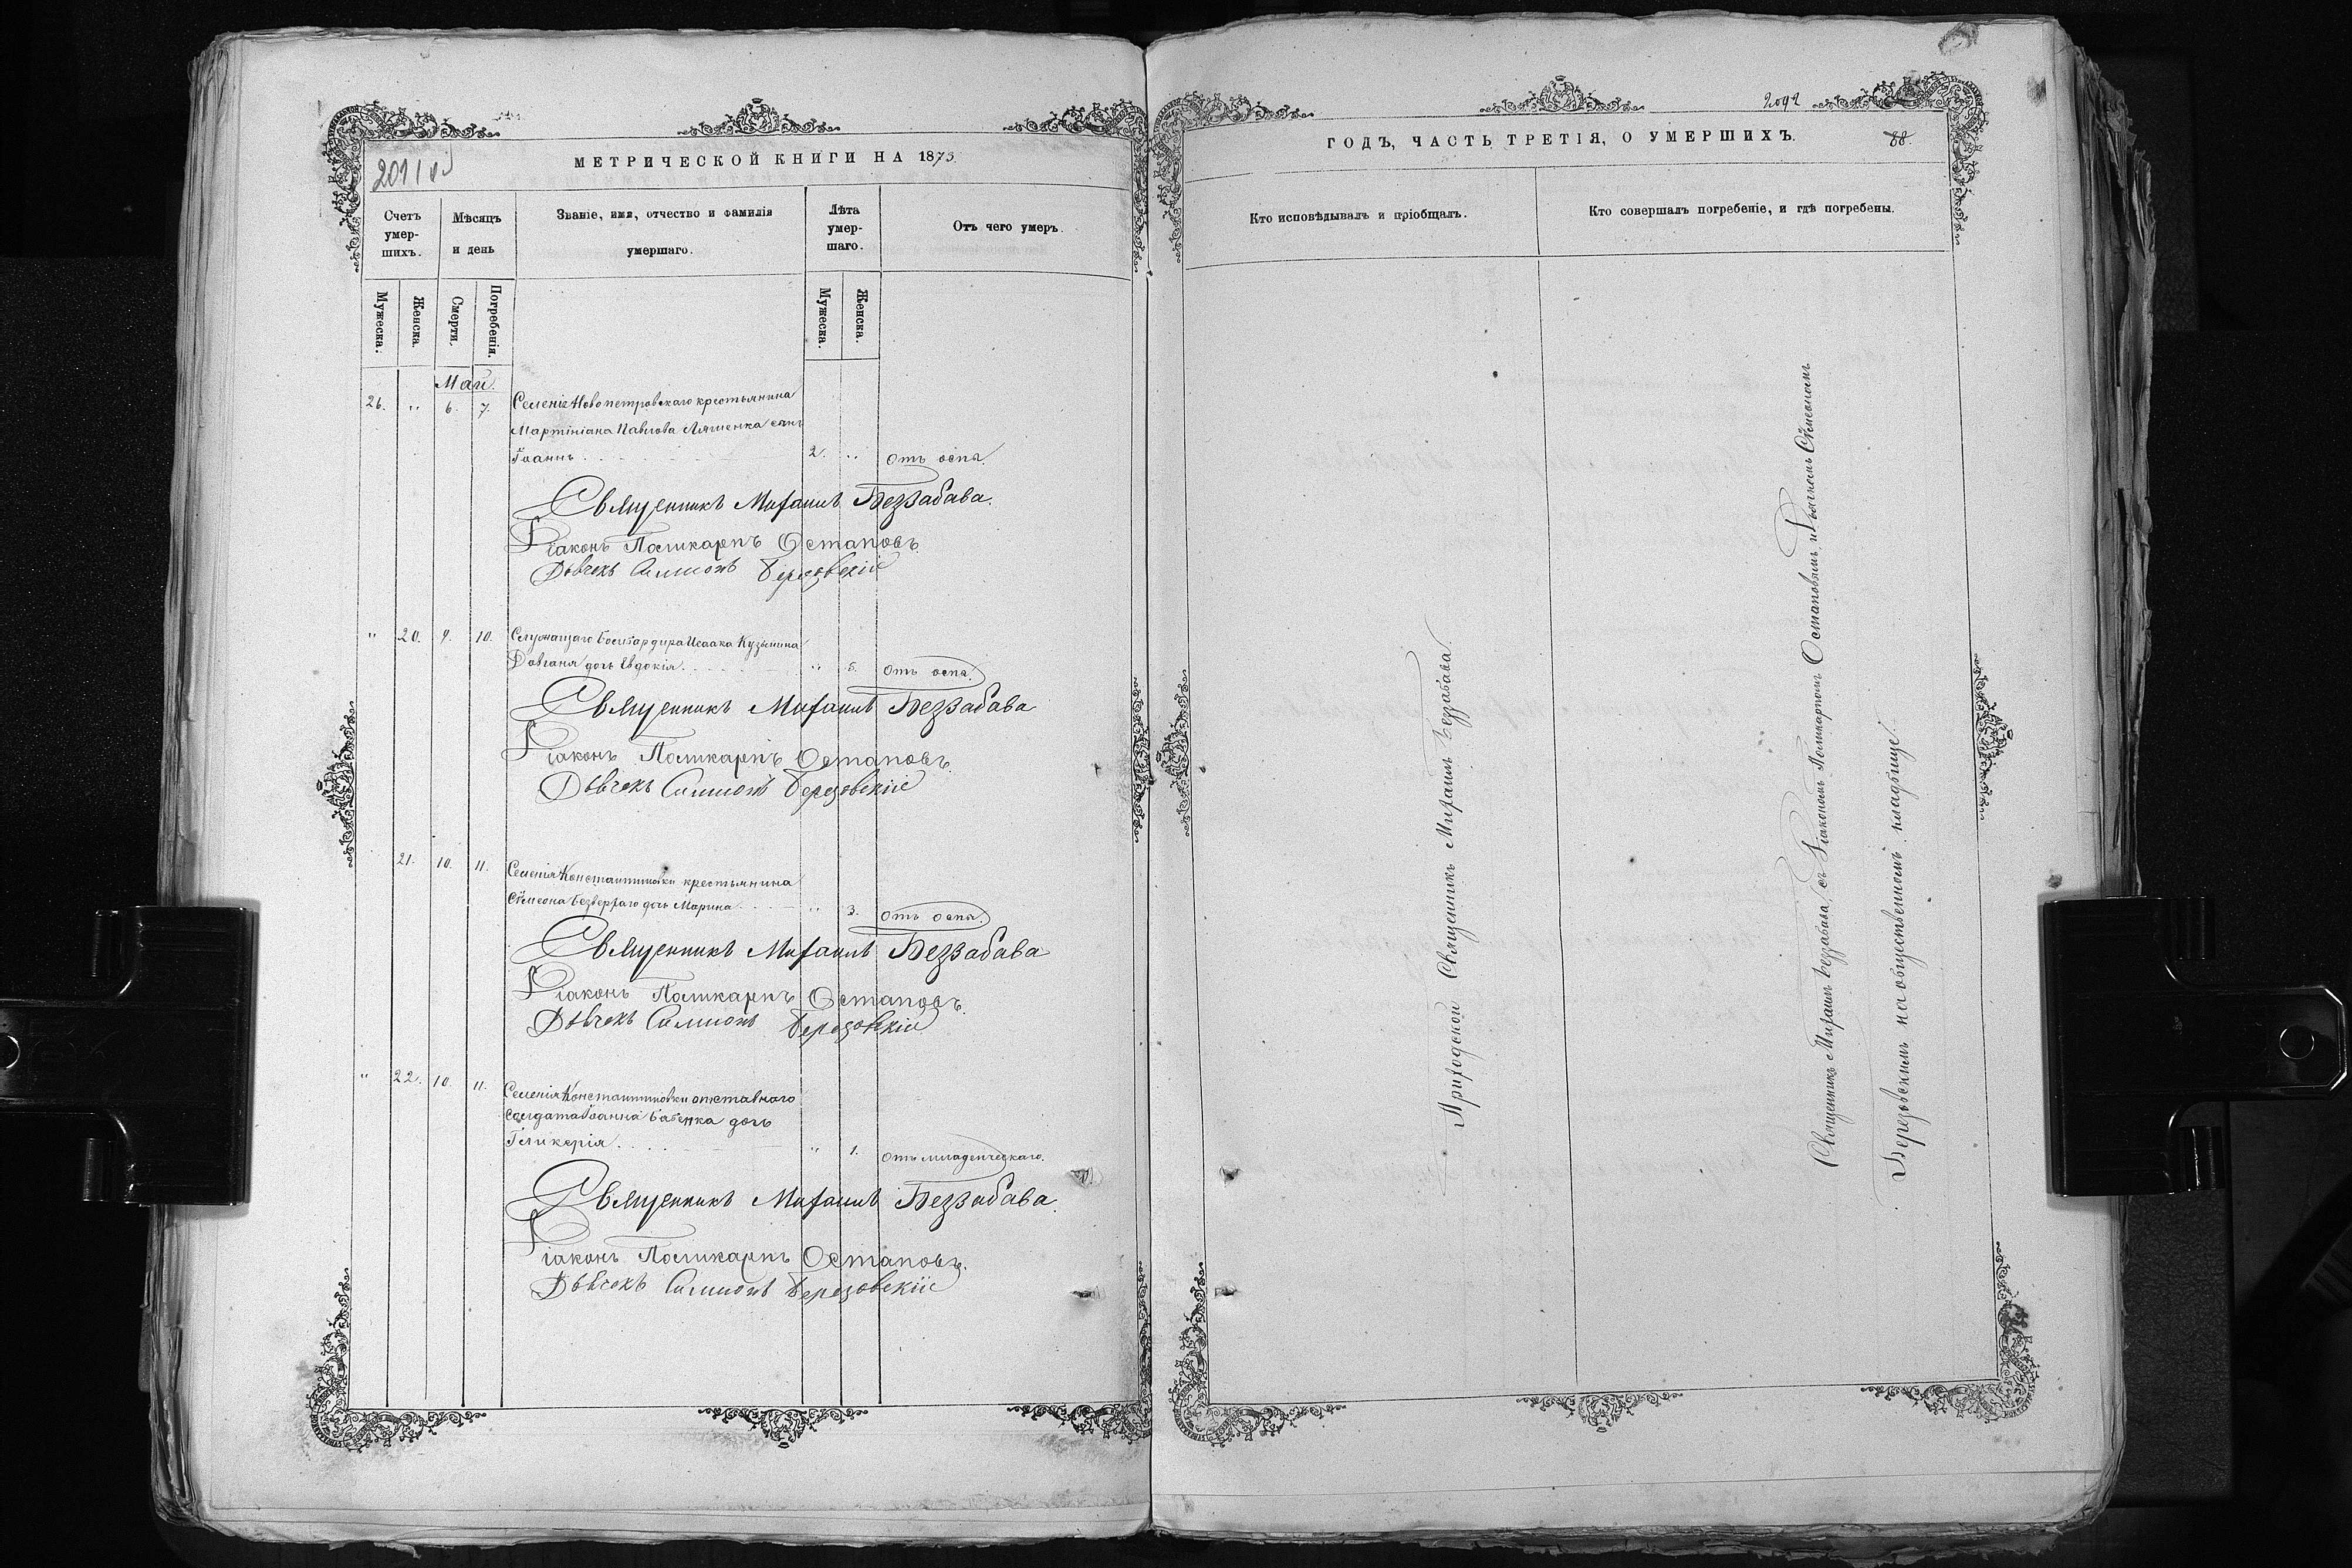 МЕТРИЧЕСКОЙ КНИГИ НА 1875
Счетъ умер-шихъ.
Мѣсяцъ и день
Званіе, имя, отчество и фамилія умершаго.
Лѣта умер-шаго.
Отъ чего умеръ.
Мужеска.
Женска.
Смерти.
Погребенія.
Мужеска.
Женска.
Май.
26. " 6. 7. Селенія Новопетровскаго крестьянина
Мартініана Павлова Ляшенка сынъ
Іоаннъ 2. " Отъ оспы.
Священникъ Михаилъ Беззабава.
Діаконъ Поликарпъ Остаповъ.
Дьячекъ Симеонъ Березовскій
" 20. 9. 10. Служащаго бомбардира Исаака Кузьмина
Довганя дочь Евдокія. " 5. Отъ оспы.
Священникъ Михаилъ Беззабава
Діаконъ Поликарпъ Остаповъ.
Дьячекъ Симеонъ Березовскій
21. 10. 11. Селенія Константиновки крестьянина
Сѵмеона Безверхаго дочь Марина " 3. Отъ оспы.
Священникъ Михаилъ Беззабава
Діаконъ Поликарпъ Остаповъ.
Дьячекъ Симеонъ Березовскій
" 22. 10. 11. Селенія Константиновки отставного
солдата Іоанна Бабенка дочь
Гликерія. " 1. Отъ младенческаго.
Священникъ Михаилъ Беззабава.
Діаконъ Поликарпъ Остаповъ.
Дьячекъ Симеонъ Березовскій
2092
ГОДЪ, ЧАСТЬ ТРЕТІЯ, О УМЕРШИХЪ.
88.
Кто исповѣдывалъ и пріобщалъ.
Кто совершалъ погребеніе, и гдѣ погребены.
Приходской Священникъ Михаилъ Беззабава.
Священникъ Михаилъ Беззабава, съ Діакономъ Поликарпомъ Остаповымъ, и Дьячкомъ Сѵмеономъ
Березовскимъ на общественномъ кладбище.